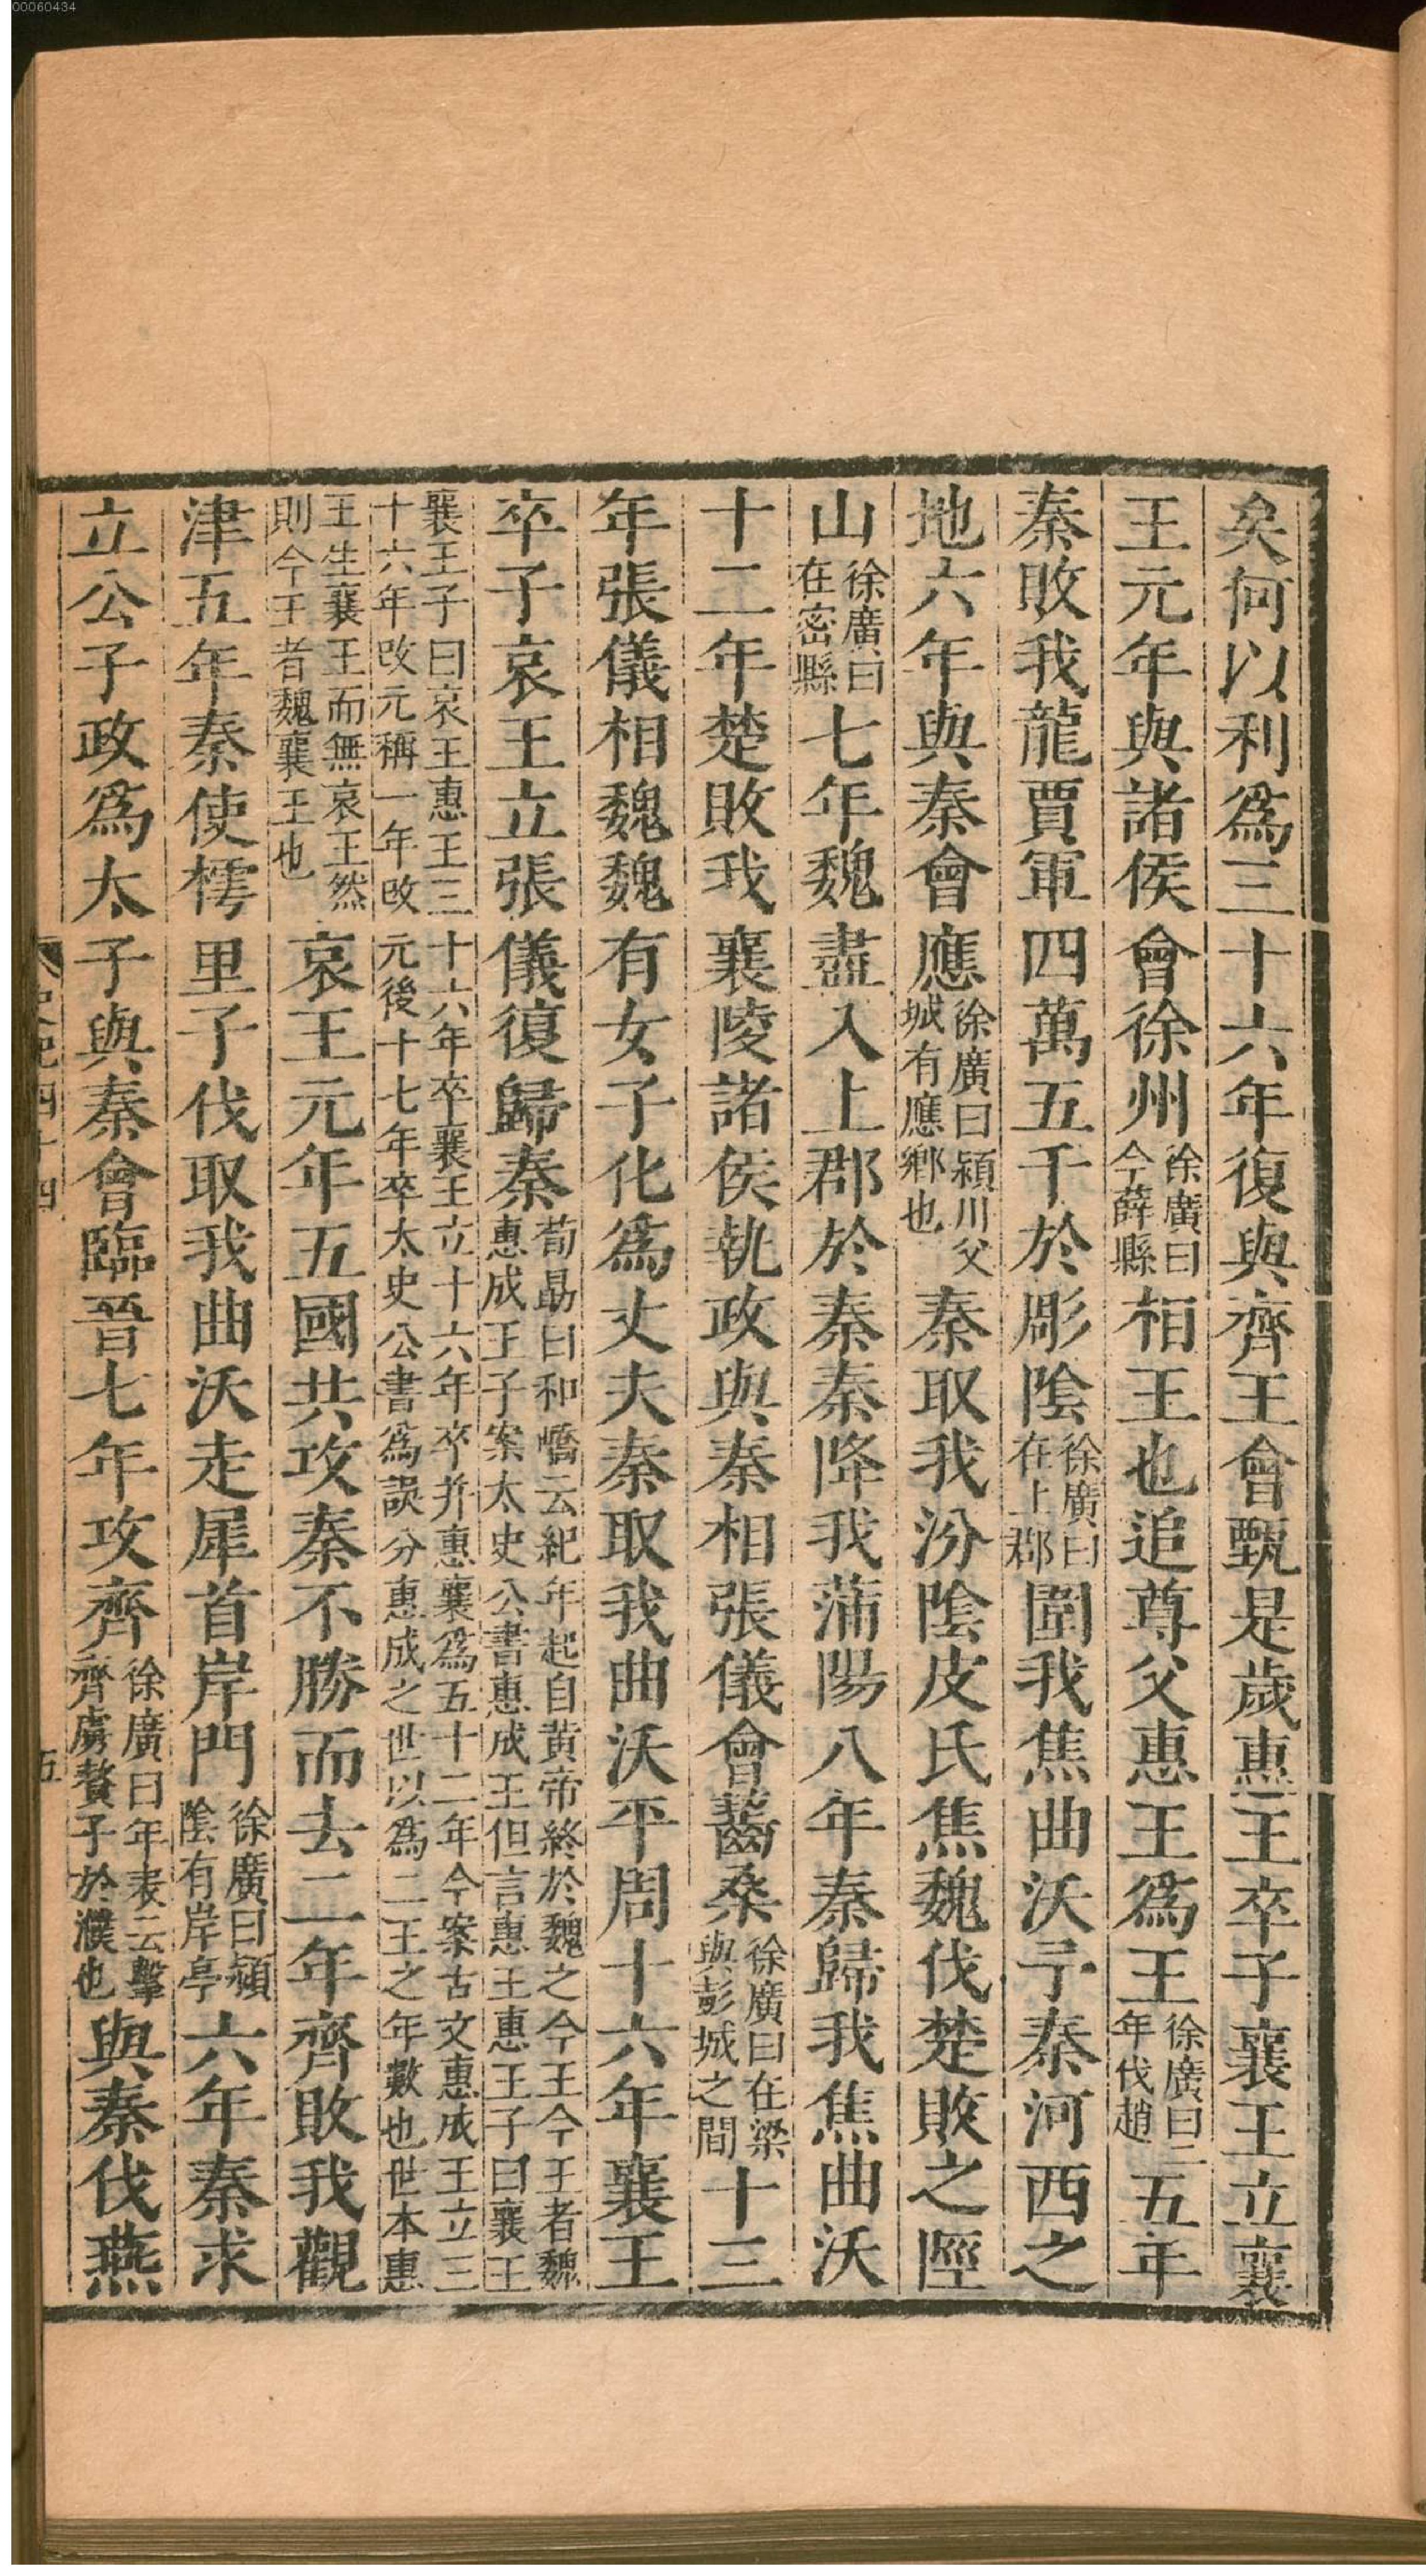 00060434
矣何以利爲三十六年復與齊王會甄是歲惠王卒子襄王立襄
王元年與諸侯會徐州徐廣曰今薛縣相王也追尊父惠王爲王徐廣曰二年伐趙五年
秦敗我龍賈軍四萬五千於彫陰徐廣曰在上郡圍我焦曲沃予秦河西之
地六年與秦會應徐廣曰潁川父城有應鄉也秦取我汾陰皮氏焦魏伐楚敗之陘
山徐廣曰在密縣七年魏盡入上郡於秦秦降我蒲陽八年秦歸我焦曲沃
十二年楚敗我襄陵諸侯執政與秦相張儀會齧桑徐廣曰在梁與彭城之間十三
年張儀相魏魏有女子化爲丈夫秦取我曲沃平周十六年襄王
卒子哀王立張儀復歸秦荀勗曰和嶠云紀年起自黃帝終於魏之今王今王者魏惠成王子案太史公書惠成王但言惠王惠王子曰襄王
襄王子曰哀王惠王三十六年卒襄王立十六年卒幷惠襄爲五十二年今案古文惠成王立三十六年改元稱一年改元後十七年卒太史公書爲誤分惠成之世以爲二王之年數也世本惠
王生襄王而無哀王然則今王者魏襄王也哀王元年五國共攻秦不勝而去二年齊敗我觀
津五年秦使樗里子伐取我曲沃走犀首岸門徐廣曰潁陰有岸亭六年秦求
立公子政爲太子與秦會臨晉七年攻齊徐廣曰年表云擊齊虜贅子於濮也與秦伐燕
史記四十四
五